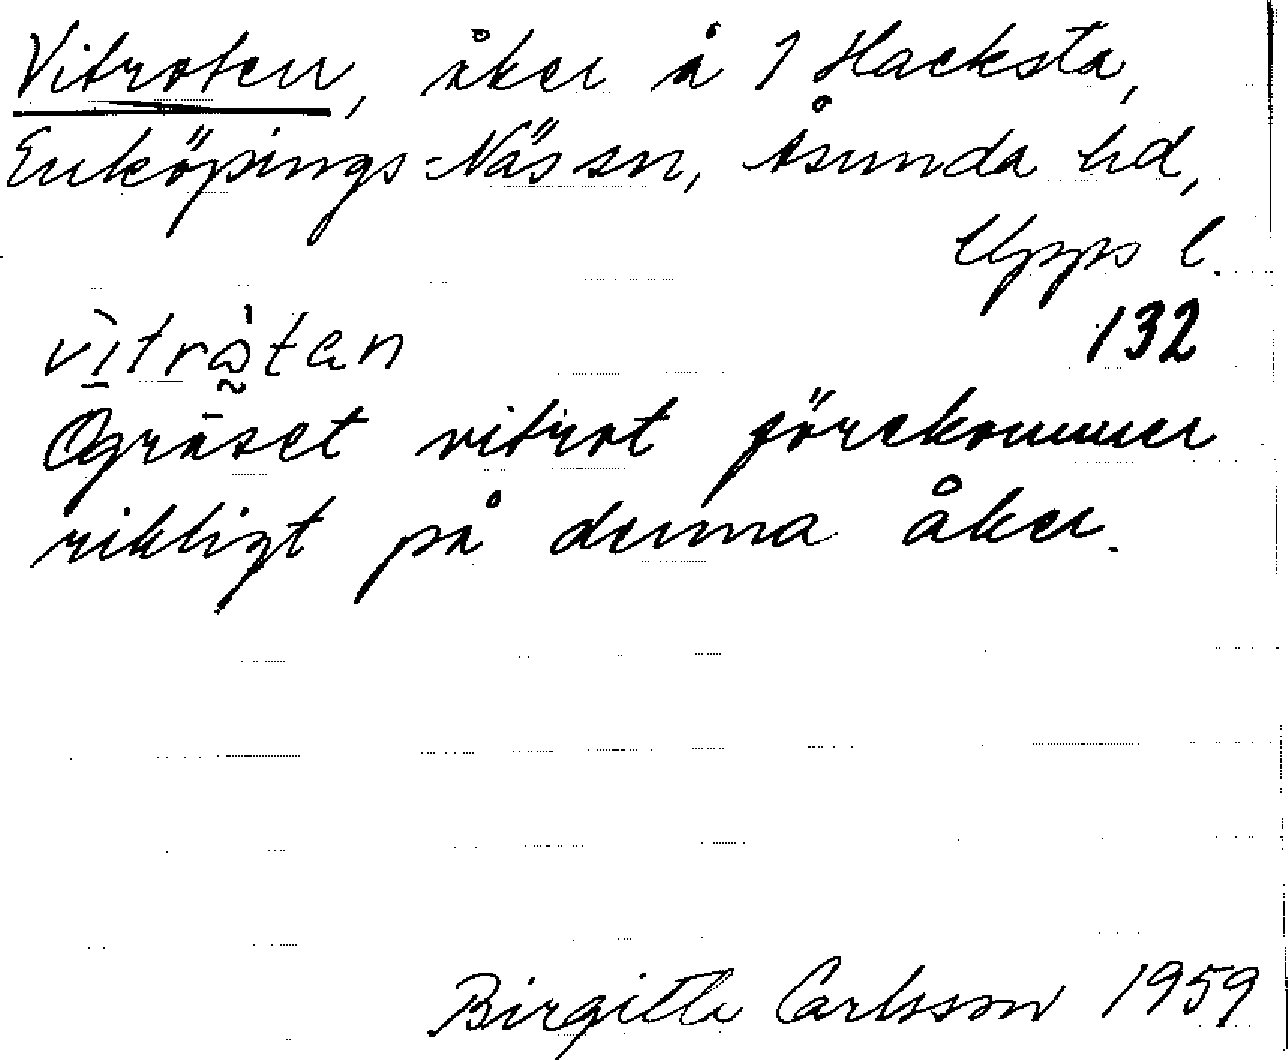 Vitroten, åker å 1 Hacksta,
Enköpings-Näs sn, Åsunda hd,
Upps l.
132
vìtrå̀tan
Ogräset vitrot förekommer
rikligt på denna åker.
Birgitta Carlsson 1959